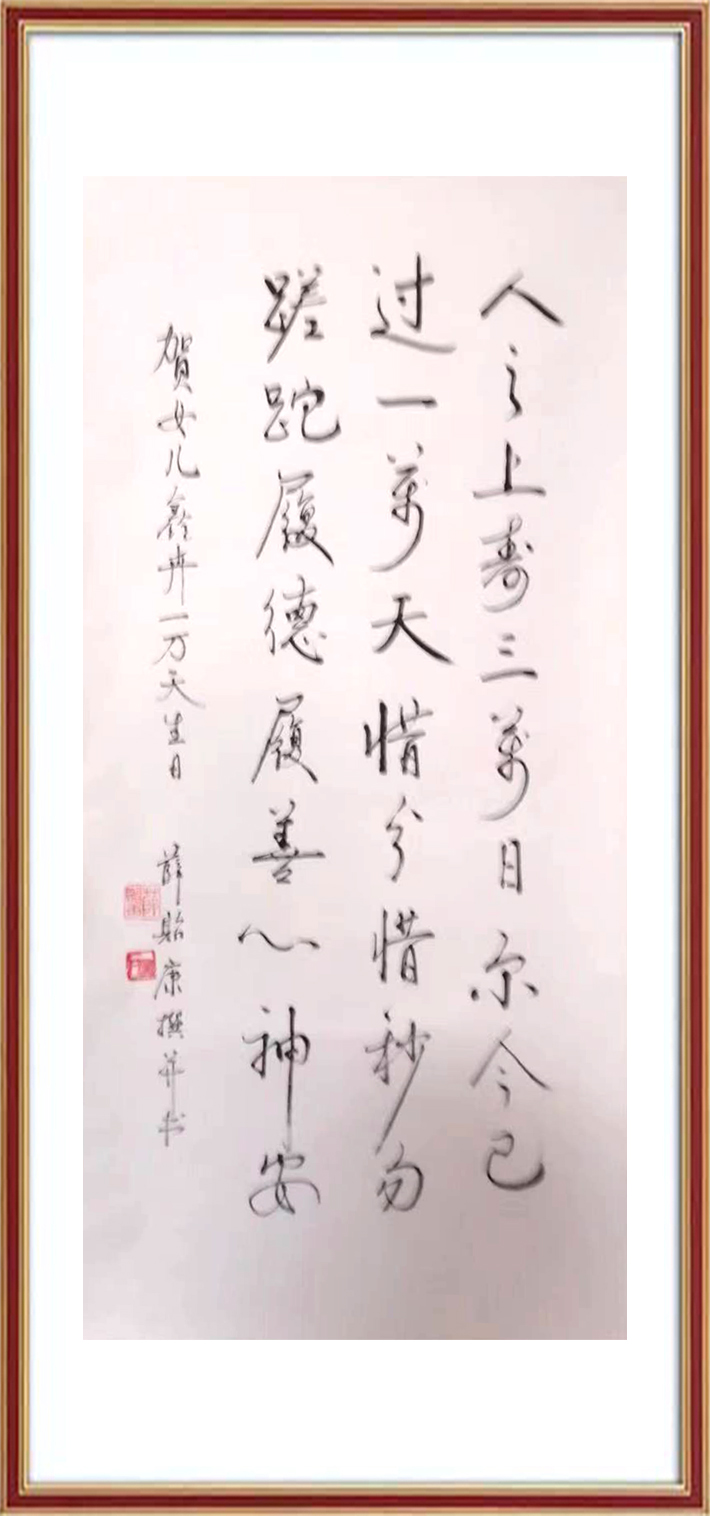 人之上寿三萬日尔今已
过一萬天惜分惜秒勿
蹉跎履德履善心神安
贺女儿鑫卉一万天生日 薛贻康撰并书